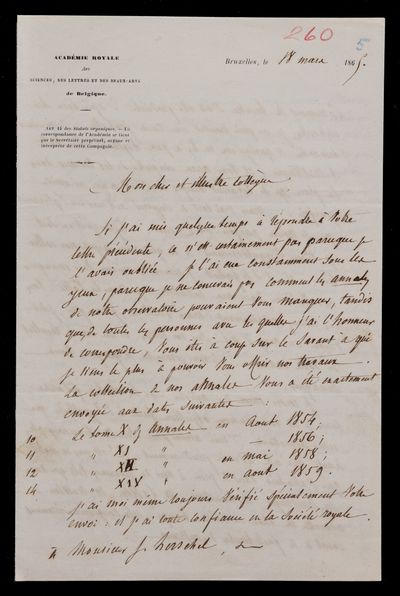 260
5
ACADÉMIE ROYALE
des
SCIENCES, DES LETTRES ET DES BEAUX-ARTS
de Belgique.
Bruxelles, le 18 mars 1865.
Art. 15 des Statuts organiques. — La
correspondance de l'Académie se tient
par le Secrétaire perpétuel, organe et
interprète de cette Compagnie.
Mon cher et illustre Collègue
Si j'ai mis quelque temps à répondre à votre
lettre précédente, ce n'est certainement pas parceque je
l'avais oubliée. Je l'ai eue constamment sous les
yeux, parceque je ne concevais pas comment les annales
de notre observatoire pouvaient vous manquer, tandis
que, de toutes les personnes avec les quelles j'ai l'honneur
de correspondre, vous êtes à coup sur le savant à qui
je tiens le plus à pouvoir vous offrir nos travaux.
La collection de nos annales vous a été exactement
envoyée aux dates suivantes :
10 Le tome X of Annales en Aout 1854;
11 " XI " — 1856;
12 " XII " en mai 1858;
14 " XIV " en aout 1859.
J'ai moi même toujours vérifié spécialement votre
envoi : et j'ai toute confiance en la Société royale.
à Monsieur J. Herschel,